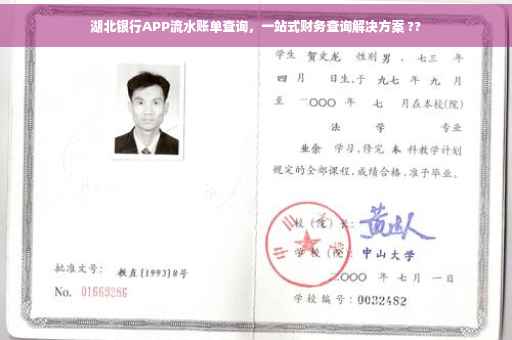 湖北银行APP流水账单查询，一站式财务查询解决方案 ??
学生 贺文龙 性别 男 、七三 年
四 月 日生,于 九七 年 九 月
至 二〇〇〇 年 七 月在本校(院)
法 学 专业
业余 学习,修完 本 科教学计划
规定的全部课程,成绩合格,准予毕业。
校 (院) 长:
学 校 (院): 中山大学
二〇〇〇 年 七 月 一 日
批准文号: 教直(1993)8号
No. 01669286
学校编号: 0032482